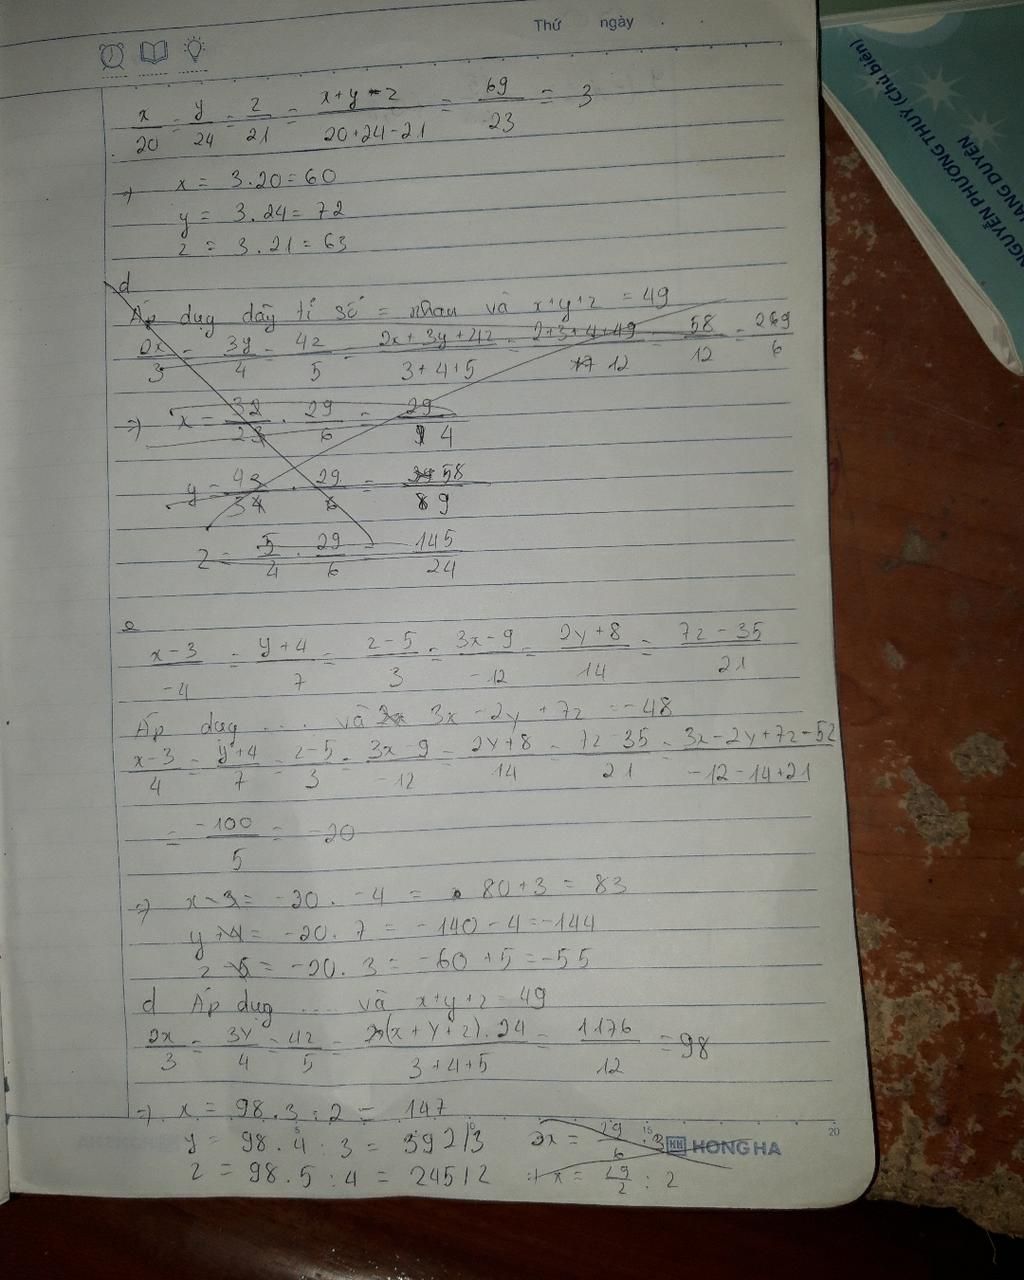 Thứ ngày . .
x/20 = y/24 = z/21 = x+y-z/20+24-21 = 69/23 = 3
=> x = 3.20 = 60
y = 3.24 = 72
z = 3.21 = 63
d
Áp dụg dãy tỉ số = nhau và x+y+z = 49
2x/3 = 3y/4 = 4z/5 = 2x+3y+4z/3+4+5 = 2+3+4+49/12 = 58/12 = 29/6
=> x = 3/2 . 29/6 = 29/4
y = 4/3 . 29/6 = 58/9
z = 5/4 . 29/6 = 145/24
e
x-3/-4 = y+4/7 = z-5/3 = 3x-9/-12 = 2y+8/14 = 7z-35/21
Áp dụg .... và 3x-2y+7z = -48
x-3/4 = y+4/7 = z-5/3 = 3x-9/-12 = 2y+8/14 = 7z-35/21 = 3x-2y+7z-52/-12-14+21
= -100/5 = -20
=> x-3 = -20 . -4 = 80+3 = 83
y+4 = -20.7 = -140-4 = -144
z-5 = -20.3 = -60+5 = -55
d Áp dụg .... và x+y+z = 49
2x/3 = 3y/4 = 4z/5 = (x+y+z).24/3+4+5 = 1176/12 = 98
=> x = 98.3:2 = 147
y = 98.4:3 = 392/3
z = 98.5:4 = 245/2
2x = 29/6 : 3
x = 29/2 : 2
5 10 15 20
HH HONG HA
NGUYỄN PHƯƠNG THUỶ (Chủ biên)
ANG DUYÊN